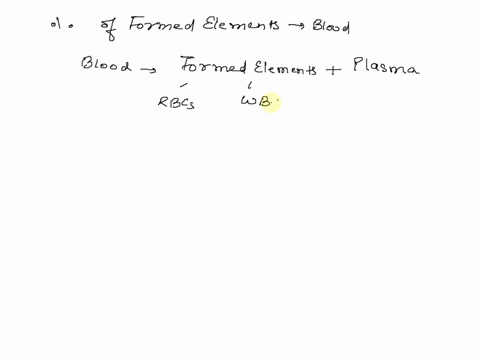 %. of Formed Elements → Blood
Blood → Formed Elements + Plasma
RBCs WB